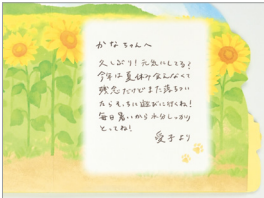 かなちゃんへ
久しぶり！元気にしてる？
今年は夏休み会えなくて
残念だけどまた落ちつい
たらそっちに遊びに行くね！
毎日暑いから水分しっかり
とってね！
愛子より